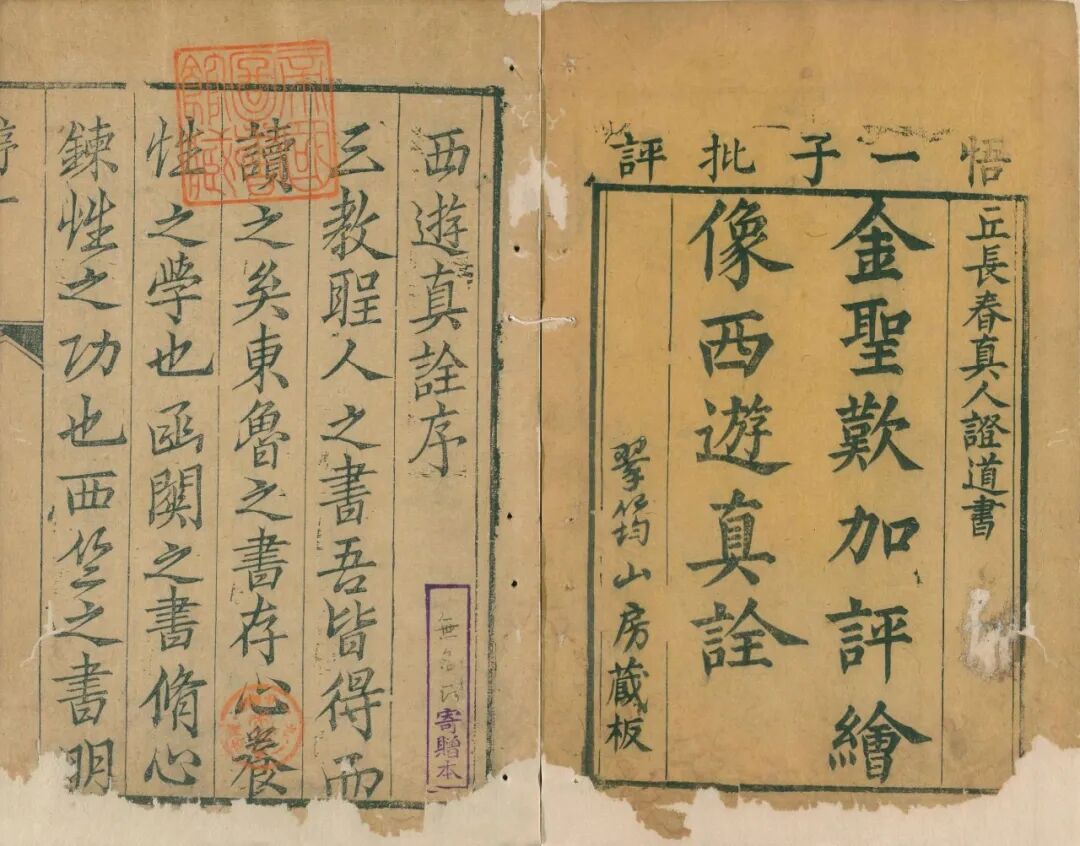 悟一子批評
丘長春真人證道書
金聖歎加評繪
像西遊真詮
翠筠山房藏板
西遊真詮序
三教聖人之書吾皆得而
讀之矣東魯之書存心養
性之學也函関之書脩心
鍊性之功也西竺之書明
寄贈本